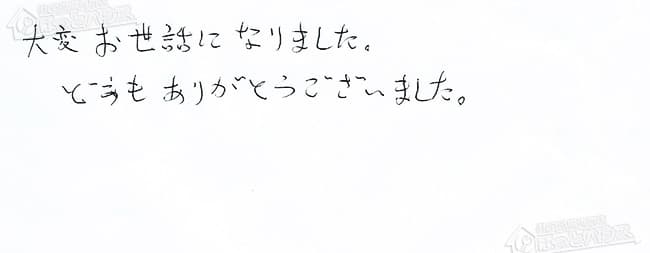 大変お世話になりました。
どうもありがとうございました。
ほっとハウス